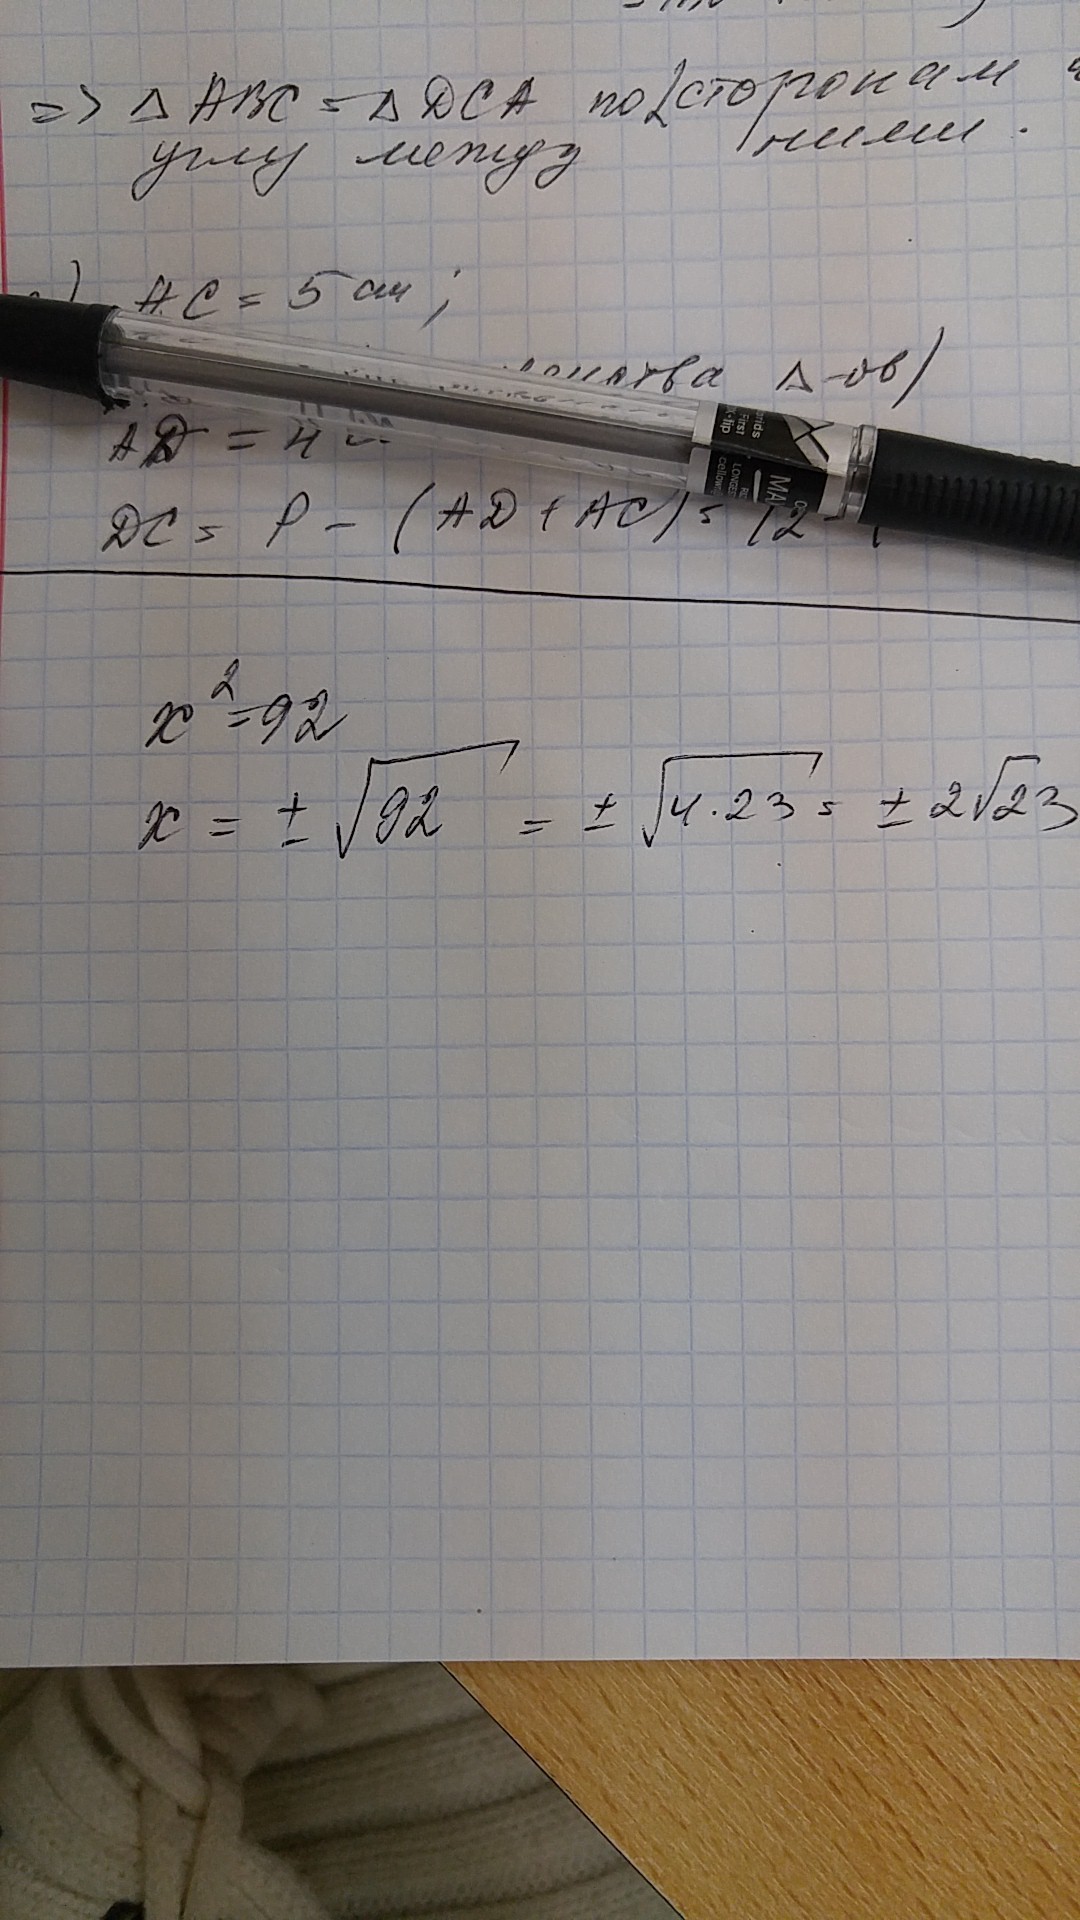 => Δ ABC = Δ DCA по 2 сторонам
углу между ними.
AC = 5 см;
Δ-ов)
AD = 4
DC = P - (AD + AC) = 12 -
x² = 92
x = ± √92 = ± √4·23 = ± 2√23